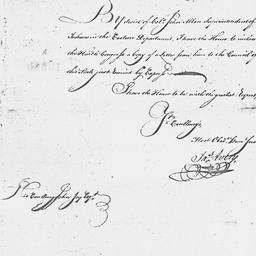 By desire of Colo. John Allan Superintendent of
Indians in the Eastern Department, I have the Honor to inclose
the Honble. Congress a Copy of a Letter from him to the Council of
this State, just receiv'd by Express
I have the Honor to be with the greatest Respect
Yr. Excellency's
Most Obedt. Hum
Jno. Avery
His Excellency John Jay Esqr.